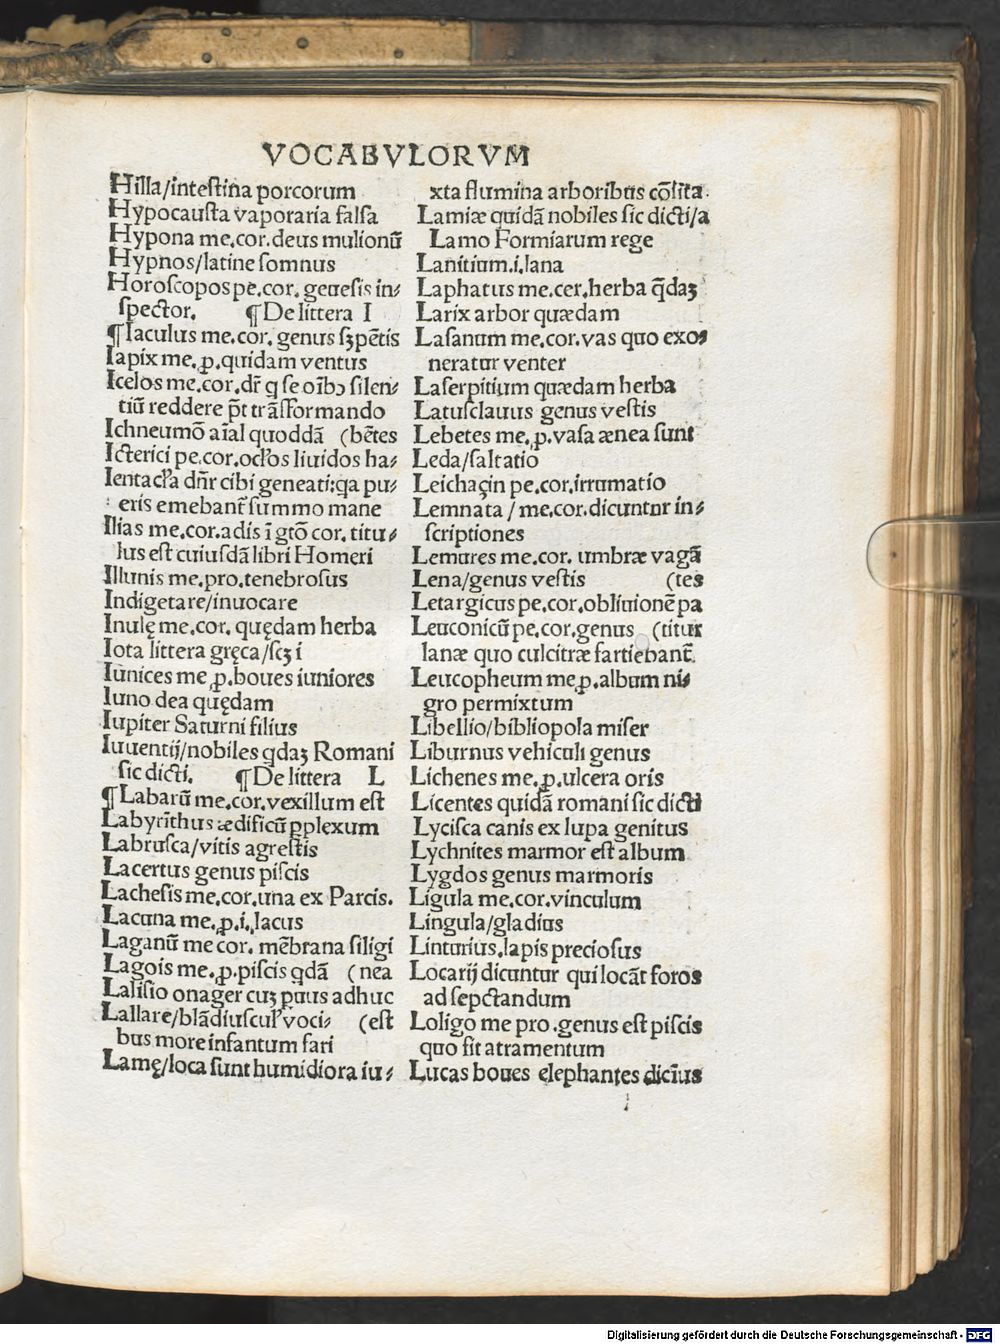 VOCABVLORVM
Hilla/intestina porcorum
Hypocausta vaporaria falsa
Hypona me.cor.deus mulionū
Hypnos/latine somnus
Horoscopos pe.cor. genesis in⸗
spector. ¶De littera I
¶Iaculus me.cor. genus sꝫpētis
Iapix me.p.quidam ventus
Icelos me.cor.dr̄ q se oībꝰ silen⸗
tiū reddere p̄t trāsformando
Ichneumō aīal quoddā (bētes
Icterici pe.cor.oclꝰos liuidos ha⸗
Ientacl̓a dn̄r cibi geneati:qa pu⸗
eris emebant̄ summo mane
Ilias me.cor.adis ī gtō cor. titu⸗
lus est cuiusdā libri Homeri
Illunis me.pro.tenebrosus
Indigetare/inuocare
Inulę me.cor. quędam herba
Iota littera gręca/scꝫ i
Iunices me.p.boues iuniores
Iuno dea quędam
Iupiter Saturni filius
Iuuentij/nobiles qdaꝫ Romani
sic dicti. ¶De littera L
¶Labarū me.cor.vexillum est
Labyrīthus ædificiū ꝑplexum
Labrusca/vitis agrestis
Lacertus genus piscis
Lachesis me.cor.una ex Parcis.
Lacuna me.p.i.lacus
Laganū me cor. mēbrana siligi
Lagois me.p.piscis qdā (nea
Lalisio onager cuꝫ ꝑuus adhuc
Lallare/blādiuscul̓ voci⸗ (est
bus more infantum fari
Lamę/loca sunt humidiora iu⸗
xta flumina arboribus cōsita.
Lamiæ quidā nobiles sic dicti/a
Lamo Formiarum rege
Lanitium.i.lana
Laphatus me.cer.herba q̄daꝫ
Larix arbor quædam
Lasanum me.cor.vas quo exo⸗
neratur venter
Laserpitium quædam herba
Latusclauus genus vestis
Lebetes me.p.vasa ænea sunt
Leda/saltatio
Leichaçin pe.cor.irrumatio
Lemnata / me.cor.dicuntur in⸗
scriptiones
Lemures me.cor. umbræ vagā
Lena/genus vestis (tes
Letargicus pe.cor.obliuionē pa
Leuconicū pe.cor.genus (titur
lanæ quo culcitræ fartiebant̄.
Leucopheum me.p.album ni⸗
gro permixtum
Libellio/bibliopola miser
Liburnus vehiculi genus
Lichenes me.p.ulcera oris
Licentes quidā romani sic dicti
Lycisca canis ex lupa genitus
Lychnites marmor est album
Lygdos genus marmoris
Ligula me.cor.vinculum
Lingula/gladius
Linturius.lapis preciosus
Locarij dicuntur qui locāt foros
ad sepctandum
Loligo me pro .genus est piscis
quo fit atramentum
Lucas boues elephantes diciūs
Digitalisierung gefördert durch die Deutsche Forschungsgemeinschaft - DFG